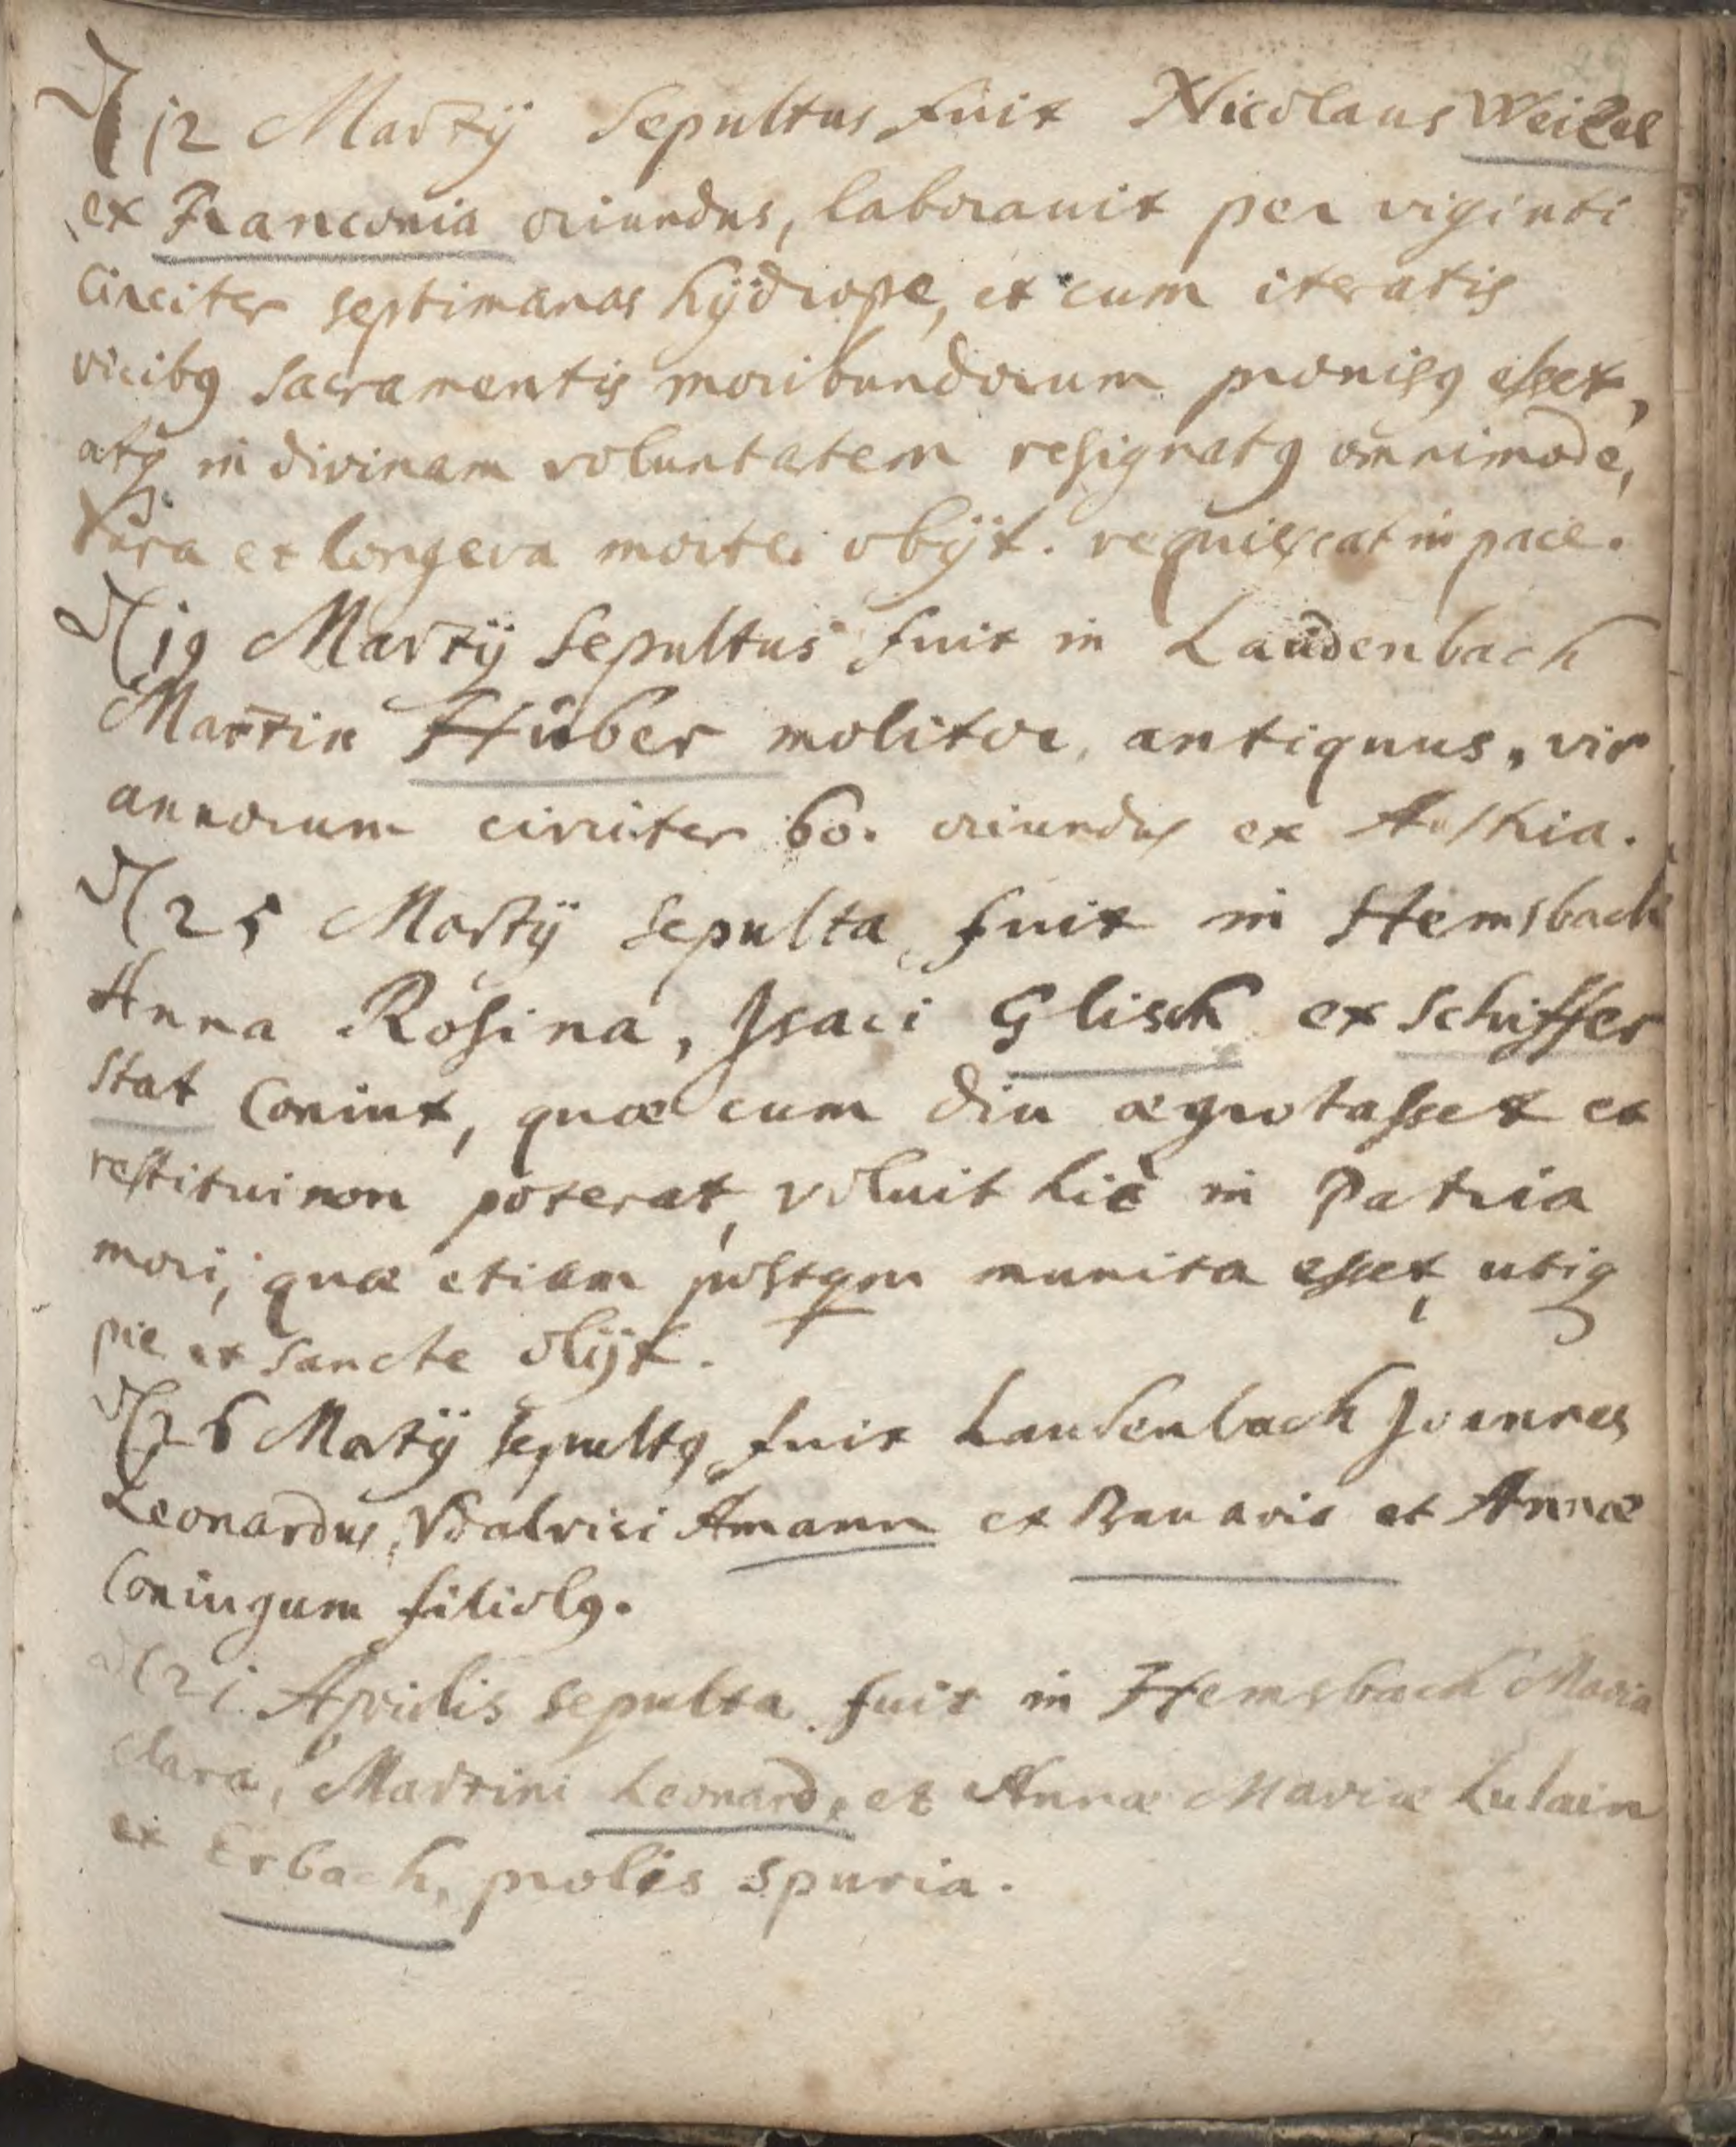 12 Martÿ Sepultus fuit Nicolaus Weikel
ex Franconia oriundus, laboravit per viginti
Circiter septimanas hÿdrope, et cum iteratis
vicibꝰ Sacramentis moribundorum provisꝰ esset,
atqꝫ in divinam voluntatem resignatꝰ omnimodè,
et longeva morte obÿt. requiescat in pace.
19 Martÿ Sepultus fuit in Laudenbach
Martin Hůber molitor, antiquus, vir
annorum circiter 60. oriundus ex Austria.
25 Martÿ sepulta fuit in Hemsbach
Anna Rosina, Isaci Glisch ex Schiffer
stat Coniux, quæ cum diu ægrotasset et
restitui non poterat, voluit hic in Patria
mori, quæ etiam postqm munita esset, utiqꝫ
pie et sancte obÿt.
26 Martÿ sepultꝰ fuit Laudenbach Joannes
Leonardus, Vdalrici Amann ex Bauaria et Annæ
Coniugum filiolꝰ.
21. Aprilis sepulta fuit in Hemsbach Maria
Clara, Martini Leonard, et Annæ Mariæ
ex Erbach, proles spuria.